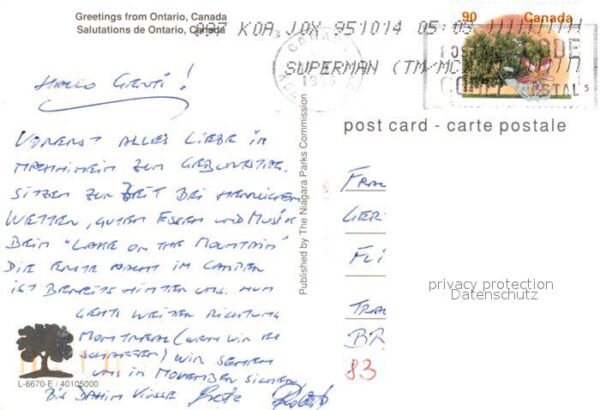 Greetings from Ontario, Canada
Salutations de Ontario, Canada
KOA JOX 951014 05:03
SUPERMAN (TM/MC)
CANADA
90 Canada
POSTAL CODE
CODE POSTAL
HALLO GERTI!
VORERST ALLES LIEBE IM
NACHHINEIN ZUM GEBURTSTAG.
SITZEN ZUR ZEIT BEI HERRLICHEM
WETTER, GUTEM ESSEN UND MUSIK
BEIM "LAKE ON THE MOUNTAIN"
DIE ERSTE NACHT IM CAMPER
IST BEREITS HINTER UNS. NUN
GEHTS WEITER RICHTUNG
MONTREAL (WENN WIR ES
SCHAFFEN) WIR SEHEN
UNS IM NOVEMBER SICHER
BIS DAHIN
Published by The Niagara Parks Commission
post card - carte postale
FRAU
GER
FLI
TRA
BR
83
privacy protection
Datenschutz
L-6670-E / 40105000